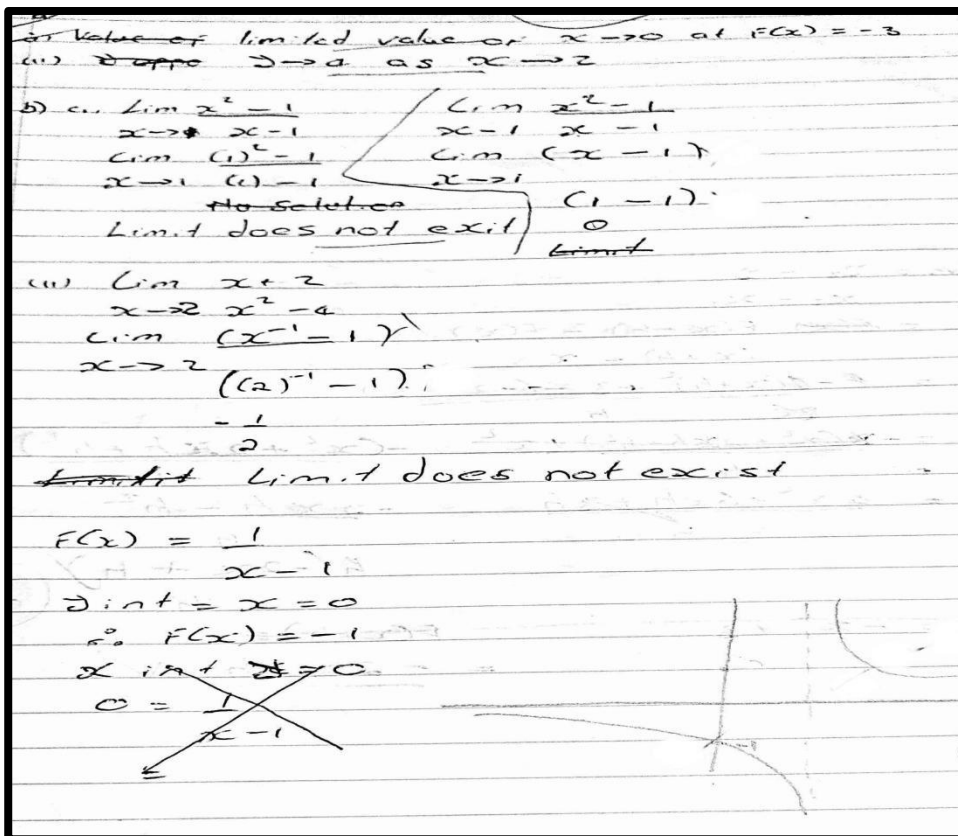 limited value or x → 0 at F(x) = -3
(ii) y → 4 as x → 2
b) Lim x² - 1
x → x - 1
Lim (1)² - 1
x → 1 (1) - 1
No Solution
Limit does not exit
Lim x² - 1
x - 1 x - 1
Lim (x - 1)
x → 1
(1 - 1)
0
Limit
(ii) Lim x + 2
x → 2 x² - 4
Lim (x⁻¹ - 1)
x → 2
((2)⁻¹ - 1)
- 1
2
Limit does not exist
F(x) = 1
x - 1
y int = x = 0
∴ F(x) = -1
x int = 0
0 = 1
x - 1
=
-1